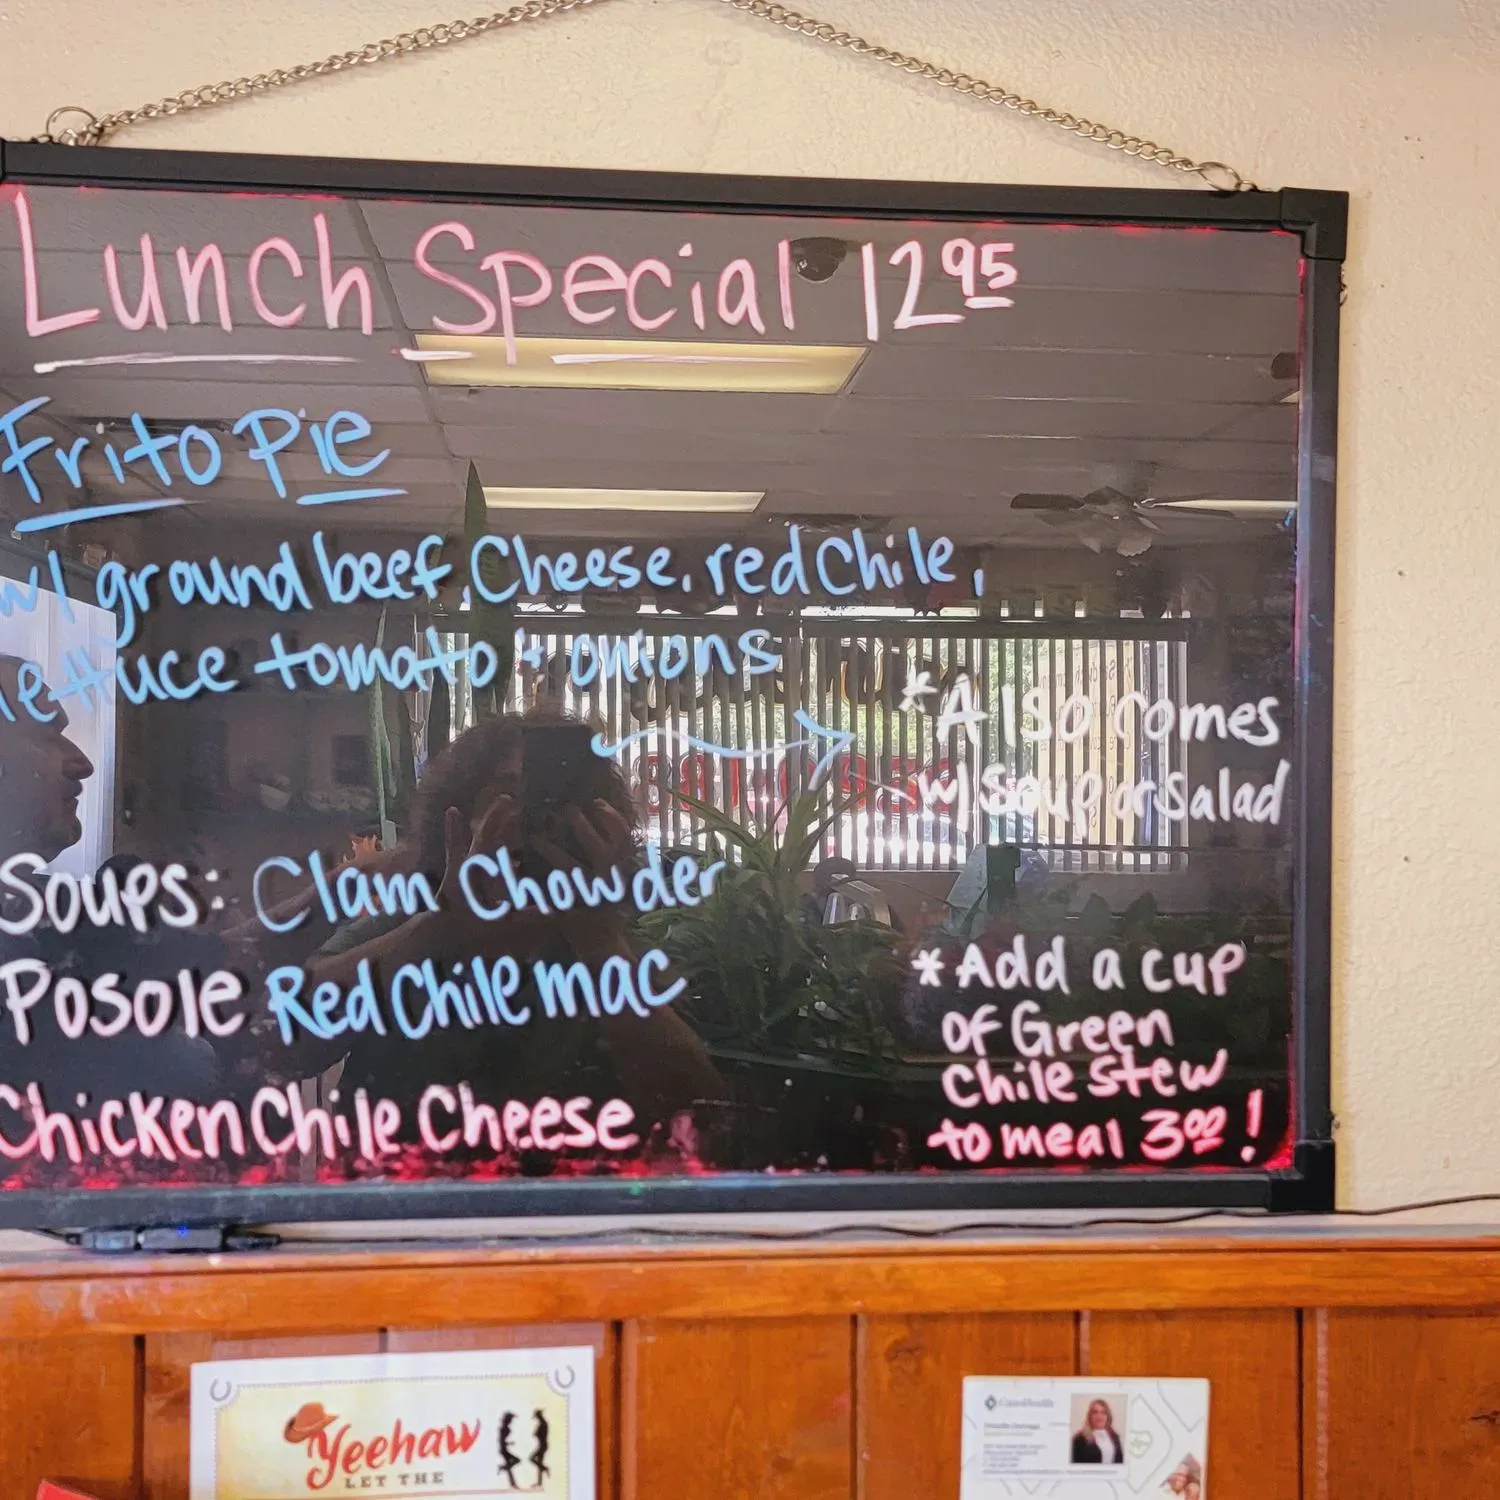 Lunch Special 12 95
Frito Pie
w/ ground beef, Cheese, red Chile,
lettuce tomato + onions
*Also comes
w/ Soup or Salad
Soups: Clam Chowder
Posole Red Chile mac
Chicken Chile Cheese
*Add a cup
of Green
Chile Stew
to meal 3.00!
Yeehaw
LET THE